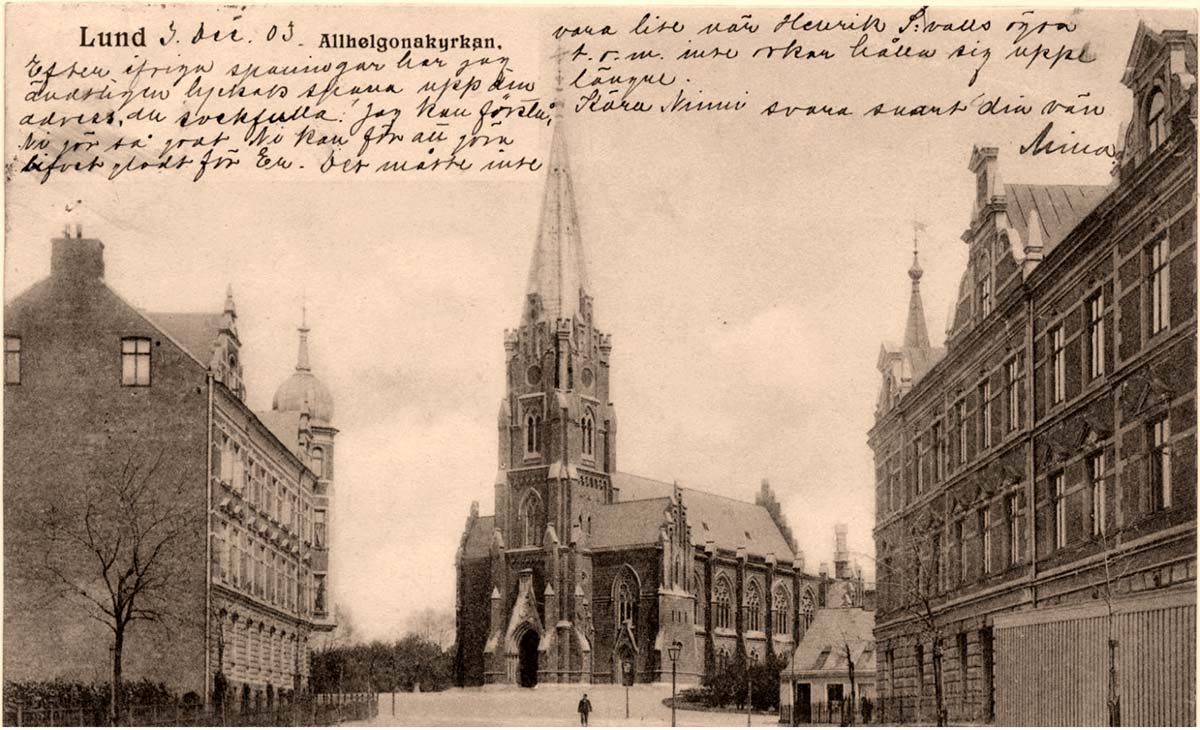 Lund 3 Dec. 03. Allhelgonakyrkan.
Efter ifriga spaningar har jag
ändtligen lyckats spana upp din
adress, du sockfulla! Jag kan förstå,
Ni gör så godt Ni kan för att göra
lifvet gladt för Er. Det måtte inte
vara lite när Henrik S:valls ögon
t. o. m. inte orkar hålla sig uppe
längre.
Kära Ninni svara snart din vän
Mina